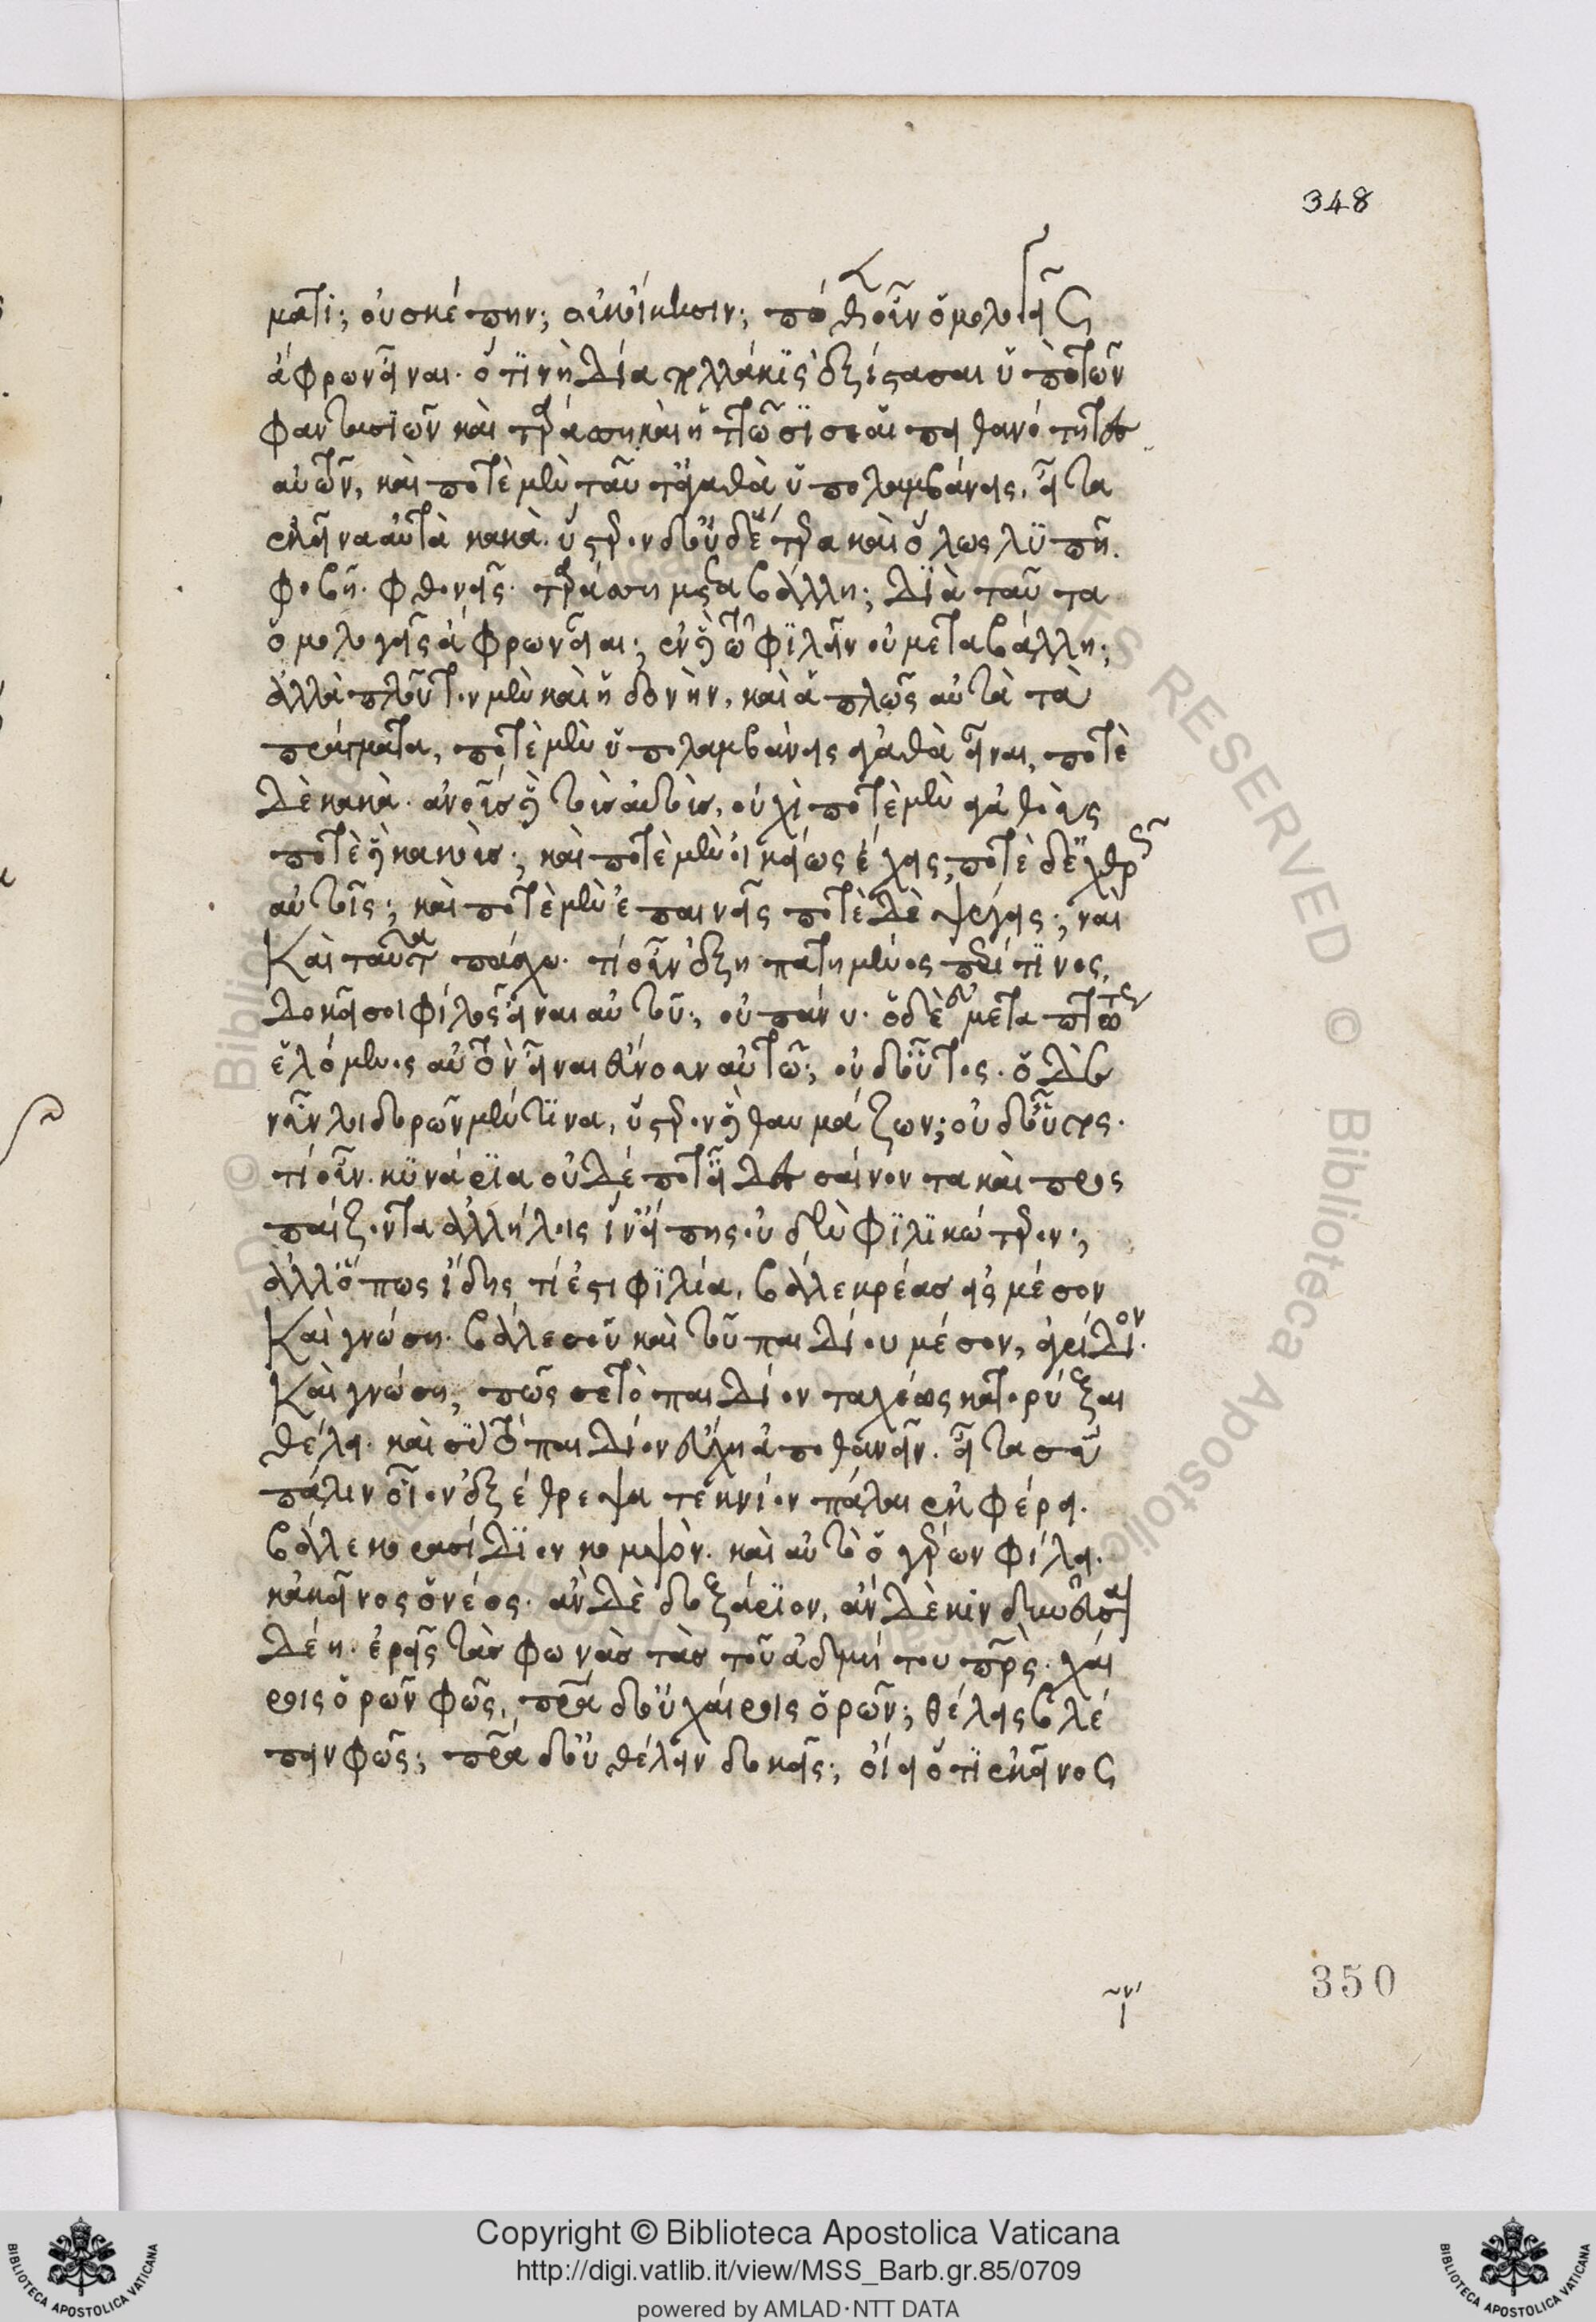 ματι; οὐ σκέπην; οὐκ οἴκησιν; πόθεν οὖν ὁμολογεῖς
ἄφρων εἶναι. ὅτι νὴ Δία πολλάκις ἐξίστασαι ὑπὸ τῶν
φαντασιῶν καὶ ταράσση καὶ ἡττῶσί σε αἱ πιθανότητες
αὐτῶν, καὶ ποτὲ μὲν ταῦτ' ἀγαθὰ ὑπολαμβάνεις, εἶτα
ἐκεῖνα αὐτὰ κακά. ὕστερον δ' οὐδέτερα καὶ ὅλως λυπῆ.
φοβῆ. φθονεῖς. ταράσση μεταβάλλη; διὰ ταῦτα
ὁμολογεῖς ἄφρων εἶναι; ἐν δὲ τῶ φιλεῖν οὐ μεταβάλλη;
ἀλλὰ πλοῦτον μὲν καὶ ἡδονὴν, καὶ ἁπλῶς αὐτὰ τὰ
πράγματα, ποτὲ μὲν ὑπολαμβάνεις ἀγαθὰ εἶναι, ποτὲ
δὲ κακά. ἀνοὺς δὲ τοὺς αὐτοὺς, οὐχὶ ποτὲ μὲν ἀγαθοὺς
ποτὲ δὲ κακούς; καὶ ποτὲ μὲν οἰκείως ἔχεις, ποτὲ δ' ἐχθρῶς
αὐτοῖς; καὶ ποτὲ μὲν ἐπαινεῖς ποτὲ δὲ ψέγεις; ναὶ
καὶ ταῦτα πάσχω. τί οὖν ἐξηπατημένος περί τινος,
δοκεῖ σοι φίλος εἶναι αὐτοῦ; οὐ πάνυ. ὁ δὲ μεταπτώτως
ἑλόμενος αὐτὸν εἶναι εὔνοαν αὐτῶ; οὐδ' οὗτος. ὁ δὲ
νῦν λοιδορῶν μέν τινα, ὕστερον δὲ θαυμάζων; οὐδ' οὗτος.
τί οὖν. κυνάρια οὐδέποτ' εἶδες σαίνοντα καὶ προς
παίζοντα ἀλλήλοις ἵν' εἴπης οὐδὲν φιλικώτερον;
ἀλλ' ὅπως ἴδης τί ἐστι φιλία, βάλε κρέας εἰς μέσον
καὶ γνώση. βάλε σοῦ καὶ τοῦ παιδίου μέσον, ἀγρίδιον.
καὶ γνώση, πῶς σε τὸ παιδίον ταχέως κατορύξαι
θέλει. καὶ σὺ τὸ παιδίον εὔχη ἀποθανεῖν. εἶτα σὺ
πάλιν οἷον ἐξέθρεψα τεκνίον πάλαι ἐκφέρει.
βάλε κορασίδιον κομψόν. καὶ αὐτὸ ὁ γέρων φιλεῖ.
κἀκεῖνος ὁ νέος. ἂν δὲ δοξάριον, ἂν δὲ κινδυνεῦσαι
δέη. ἐρεῖς τὰς φωνὰς τὰς τοῦ ἀδμήτου πρς. χαί
ρεις ὁρῶν φῶς, πρα δ' οὐ χαίρεις ὁρῶν; θέλεις βλέ
πειν φῶς; πρα δ' οὐ θέλειν δοκεῖς; οἴει ὅτι ἐκεῖνος
348
350
Biblioteca Apostolica
RESERVED © Biblioteca Apostolica
Copyright © Biblioteca Apostolica Vaticana
http://digi.vatlib.it/view/MSS_Barb.gr.85/0709
powered by AMLAD·NTT DATA
BIBLIOTECA APOSTOLICA VATICANA
BIBLIOTECA APOSTOLICA VATICANA